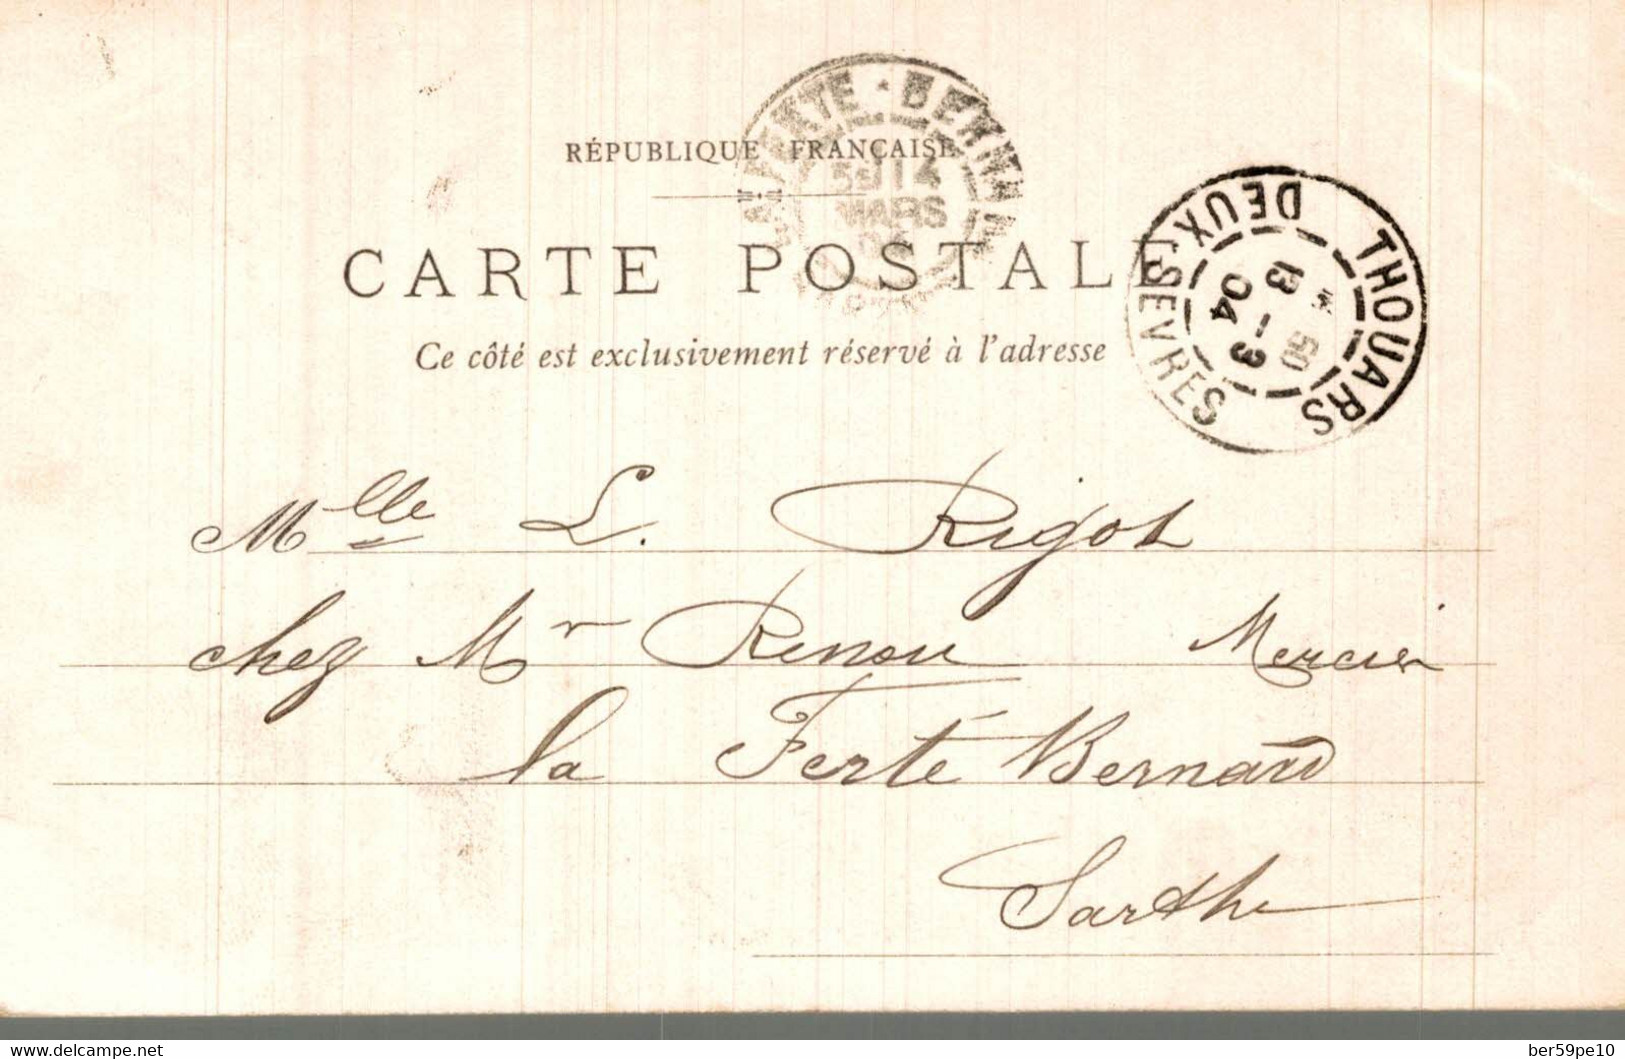 RÉPUBLIQUE FRANÇAISE
CARTE POSTALE
Ce côté est exclusivement réservé à l'adresse
THOUARS
DEUX-SEVRES
13 - 3
04
FERTE - BERNARD
14
MARS
Mlle L. Rigot
chez Mr Renou Mercier
la Ferté Bernard
Sarthe
www.delcampe.net
ber59pe10